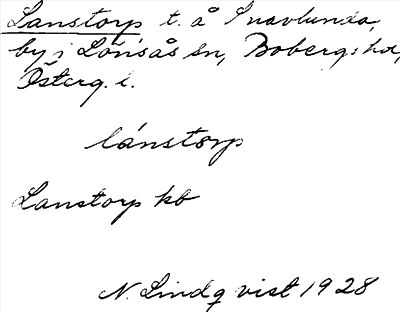 Lanstorp t. å Snavlunda,
by i Lönsås sn, Bobergs hd,
Österg. l.
lánstorp
Lanstorp kb
N. Lindqvist 1928